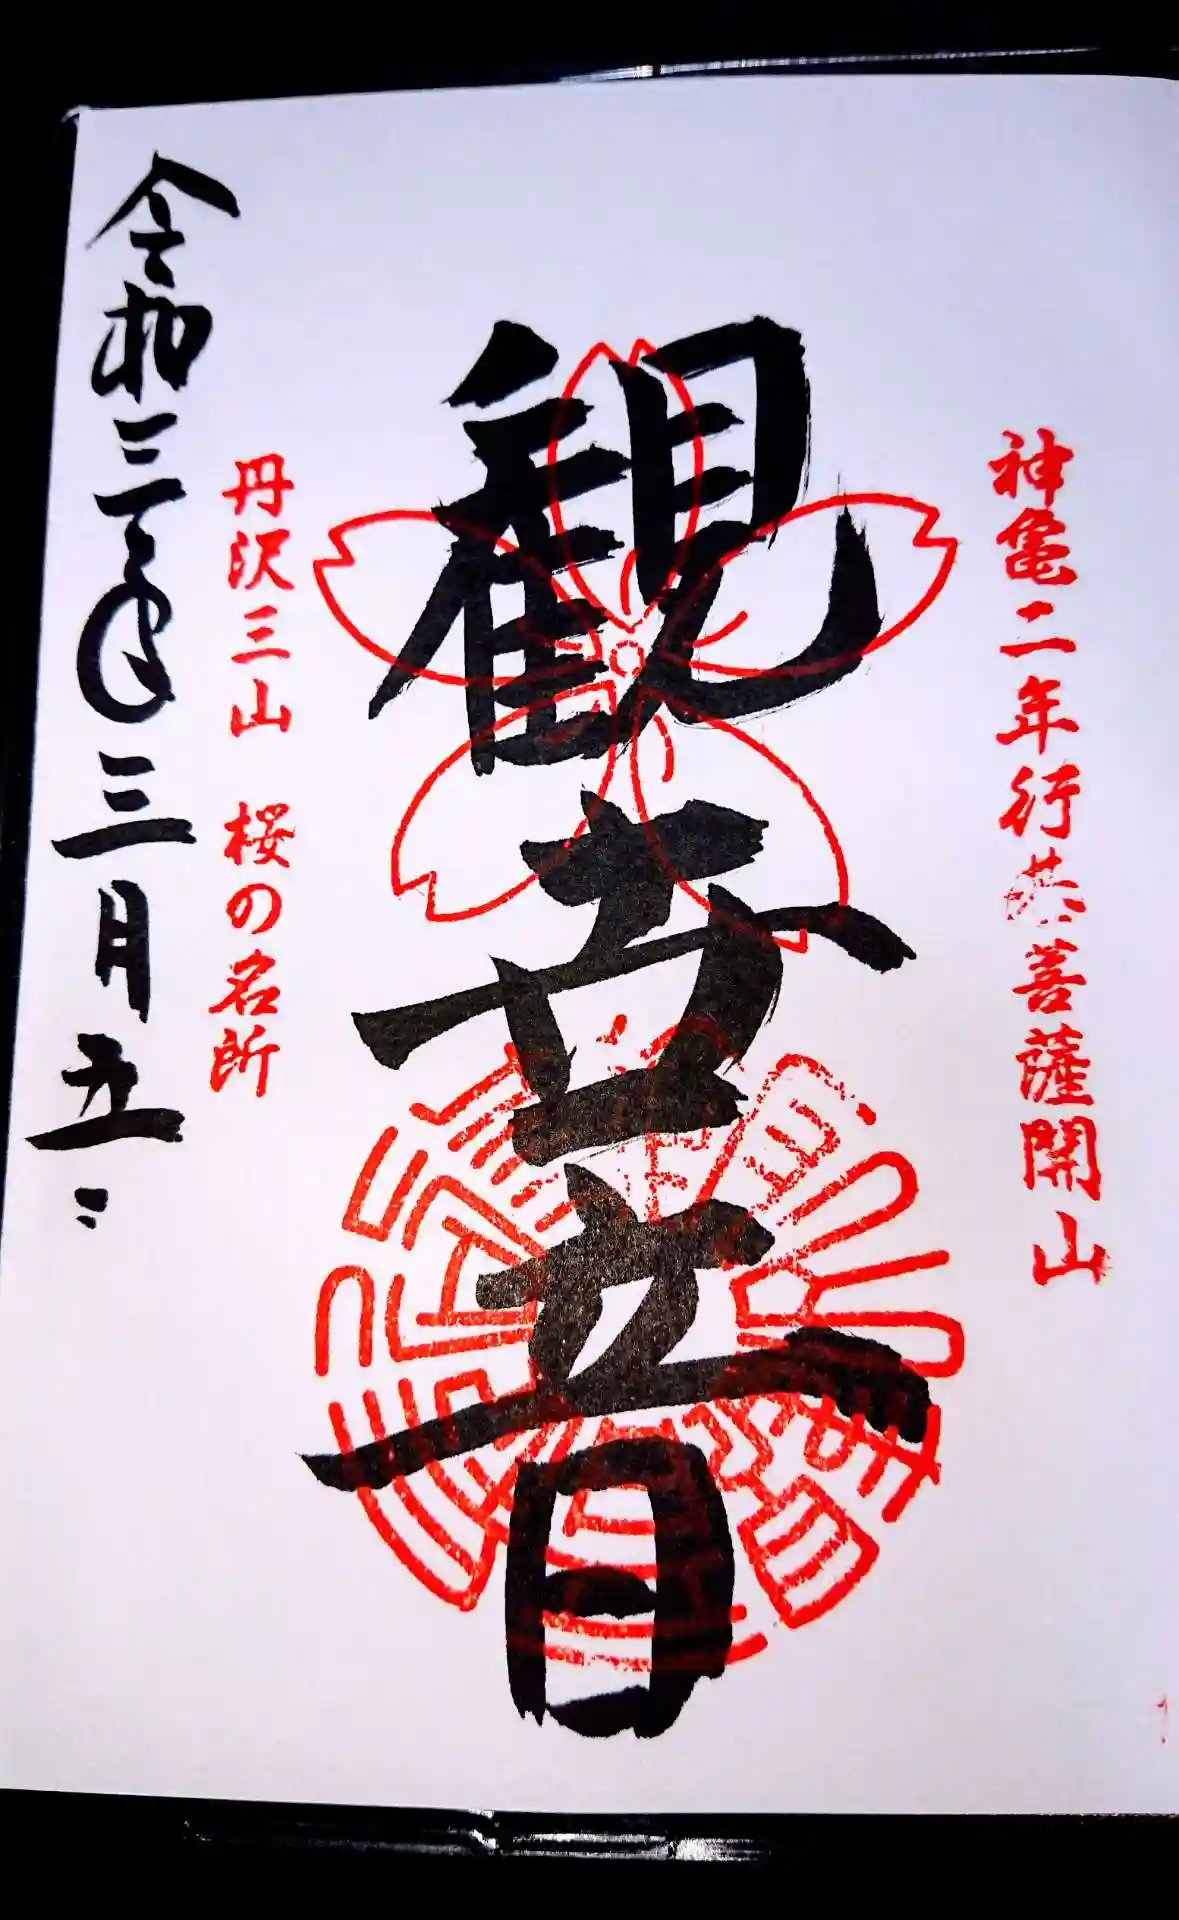 神亀二年行基菩薩開山
観世音
丹沢三山 桜の名所
令和三年三月五日